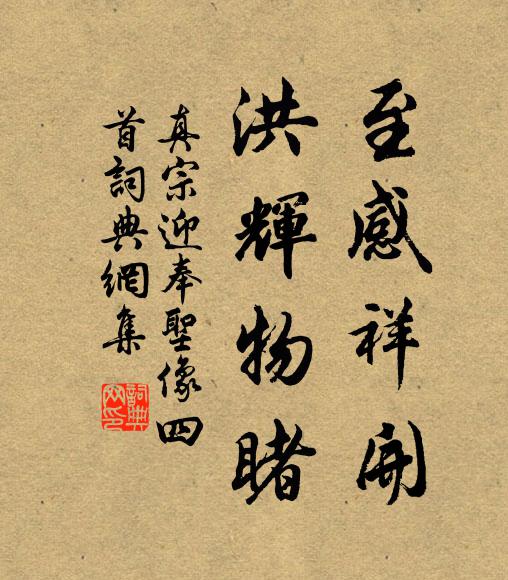 至感祥開
洪輝物睹
真宗迎奉聖像四
首詞典網集
詞典
网印